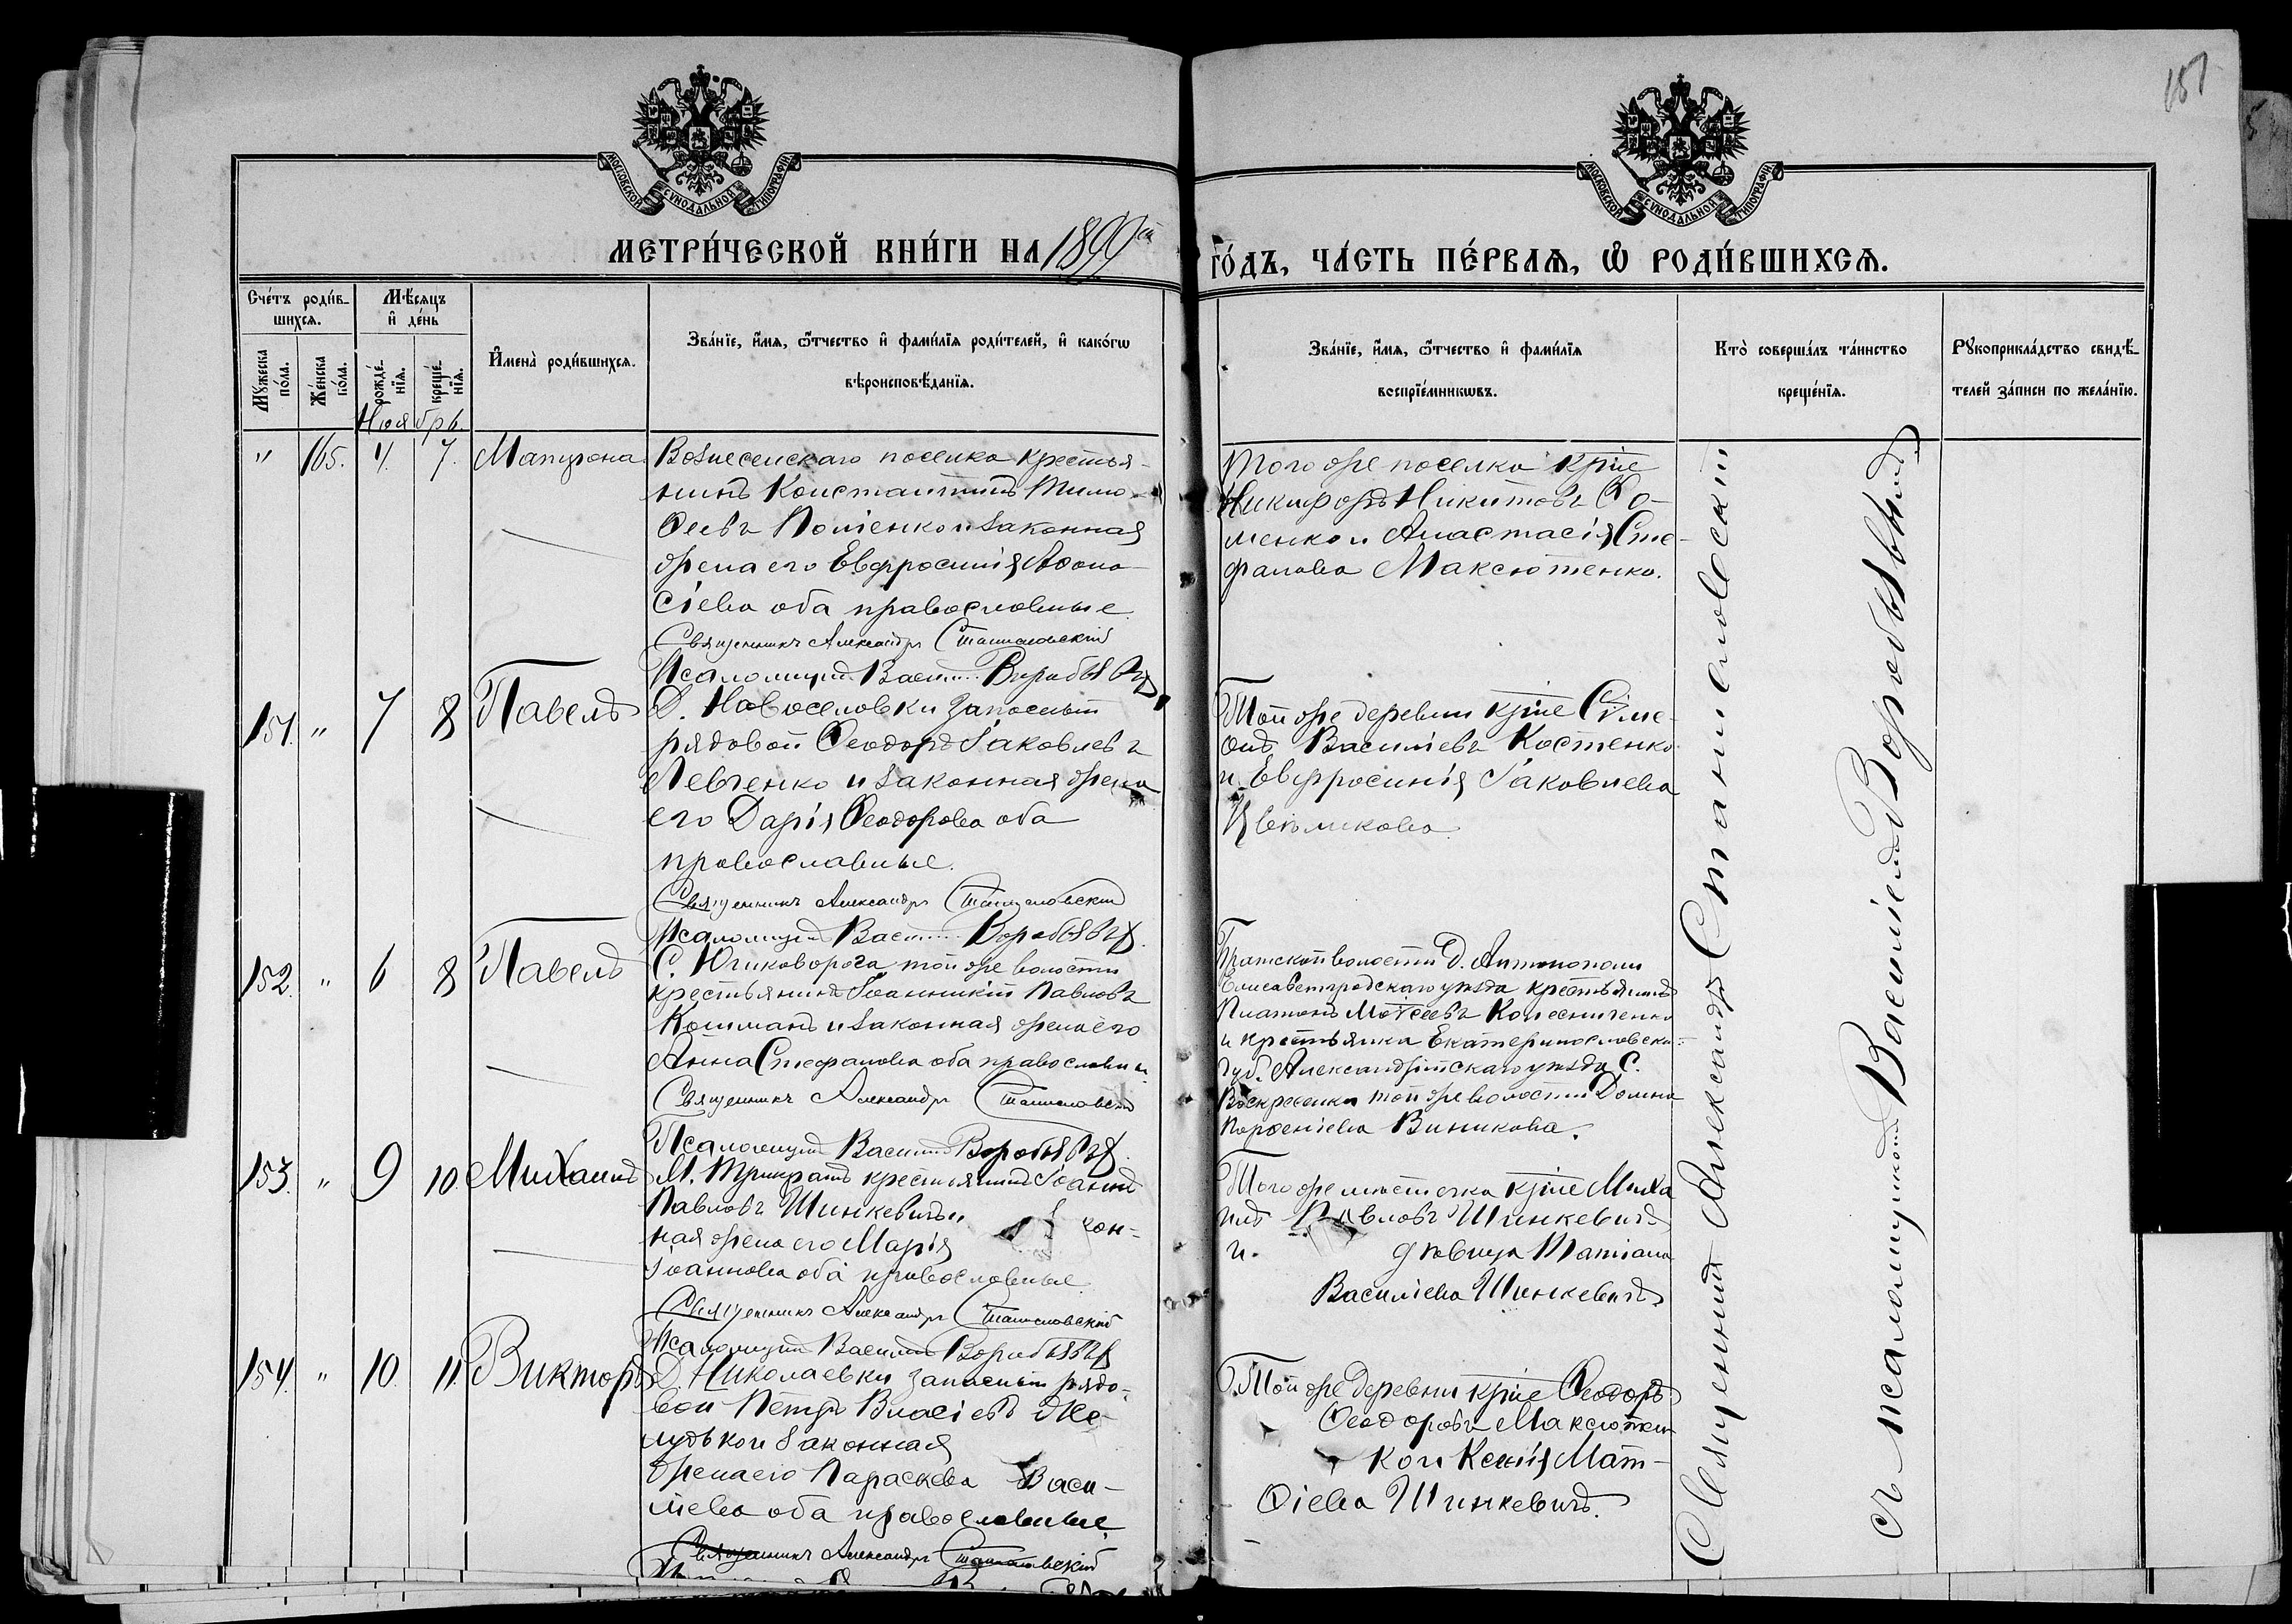 157
МОСКОВСКОЙ СУНОДАЛЬНОЙ ТИПОГРАФІИ
МОСКОВСКОЙ СУНОДАЛЬНОЙ ТИПОГРАФІИ
МЕТРИ́ЧЕСКОЙ КНИ́ГИ НА 1899й
ГО́ДЪ, ЧА́СТЬ ПЕ́РВАѦ, Ѡ РОДИ́ВШИХСѦ.
Сче́тъ роди́в-
шихсѧ.
Мѣ́сѧцъ
и҆ де́нь
Мꙋ́жеска по́ла.
Же́нска по́ла.
рожде́-
нїѧ.
креще́-
нїѧ.
И҆мена̀ роди́вшихсѧ.
Зва́нїе, и҆́мѧ, ѻ҆́тчество и҆ фами́лїѧ роди́телей, и҆ како́гѡ
вѣроисповѣ́данїѧ.
Зва́нїе, и҆́мѧ, ѻ҆́тчество и҆ фами́лїѧ
воспрїе́мникѡвъ.
Кто̀ соверша́лъ та́инство
креще́нїѧ.
Рꙋкоприкла́дство свидѣ́-
телей за́писи по жела́нїю.
Ноябрь.
" 165. 4. 7. Матрона
Вознесенскаго поселка крестья-
нинъ Константинъ Тимо-
ѳеевъ Поліенко и законная
жена его Евфросинія Аѳана-
сіева оба православные
Священникъ Александръ Станиславскій
Псаломщикъ Василій Воробьевъ
Того же поселка кр̃не
Никифоръ Никитовъ Ѳо-
менко и Анастасія Сте-
фанова Максютенко.
151. " 7 8 Павелъ
Д. Новоселовки запасный
рядовой Ѳеодоръ Іаковлевъ
Левченко и законная жена
его Дарія Ѳеодорова оба
православные.
Священникъ Александръ Станиславскій
Псаломщикъ Василій Воробьевъ
Той же деревни кр̃не Симе-
онъ Василіевъ Костенко
и Евфросинія Іаковлева
Цвѣликова
152. " 6 8 Павелъ
С. той же волости
крестьянинъ Іоанникій Павловъ
Кошманъ и законная жена его
Анна Стефанова оба православн.
Священникъ Александръ Станиславскій
Псаломщикъ Василій Воробьевъ
Братской волости д. Антонополи
Елисаветградскаго уѣзда крестьянинъ
Платонъ Моѵсеевъ Колесниченко
и крестьянка Екатеринославской
губ. Александрійскаго уѣзда С.
Воскресенки той же волости Домна
Парѳеніева Виникова.
153. " 9 10. Михаилъ
М. Трикратъ крестьянинъ Іоаннъ
Павловъ Шинкевичъ и
кон-
ная жена его Марія
Іоаннова оба православные
Священникъ Александръ Станиславскій
Псаломщикъ Василій Воробьевъ
Того же мѣстечка кр̃не Миха
илъ Павловъ Шинкевичъ
и. дѣвица Татіана
Василіева Шинкевичъ
154. " 10. 11. Викторъ
Д. Николаевки запасный рядо-
вой Петръ Власіевъ Же-
лудько и законная
жена его Параскева Васи-
ліева оба православные
Священникъ Александръ Станиславскій
Той же деревни кр̃не Ѳеодоръ
Ѳеодоровъ Максютен
ко и Ксенія Мат-
ѳіева Шинкевичъ.
Священникъ Александръ Станиславскій
съ псаломщикомъ Василіемъ Воробьевымъ